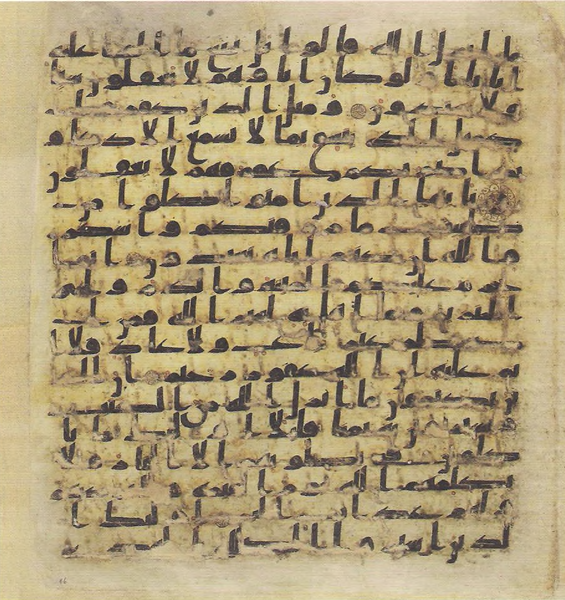 ما انزل الله قالوا بل نتبع ما الفينا عليه
ابانا اولو كان اباوهم لا يعقلون شيا
ولا يهتدون ومثل الذين كفروا
كمثل الذي ينعق بما لا يسمع الا دعا و
ندا صم بكم عمي فهم لا يعقلون
يايها الذين امنوا كلوا من
طيبت ما رزقنكم واشكروا
لله ان كنتم اياه تعبدون انما
حرم عليكم الميتة والدم ولحم
الخنزير وما اهل به لغير الله فمن
اضطر غير باغ ولا عاد فلا ا
ثم عليه ان الله غفور رحيم ان الذ
ين يكتمون ما انزل الله من الكتب
ويشترون به ثمنا قليلا اولئك ما يا
كلون في بطونهم الا النار ولا
يكلمهم الله يوم القيمة ولا يزكيهم
ولهم عذاب اليم اولئك ا
لذين